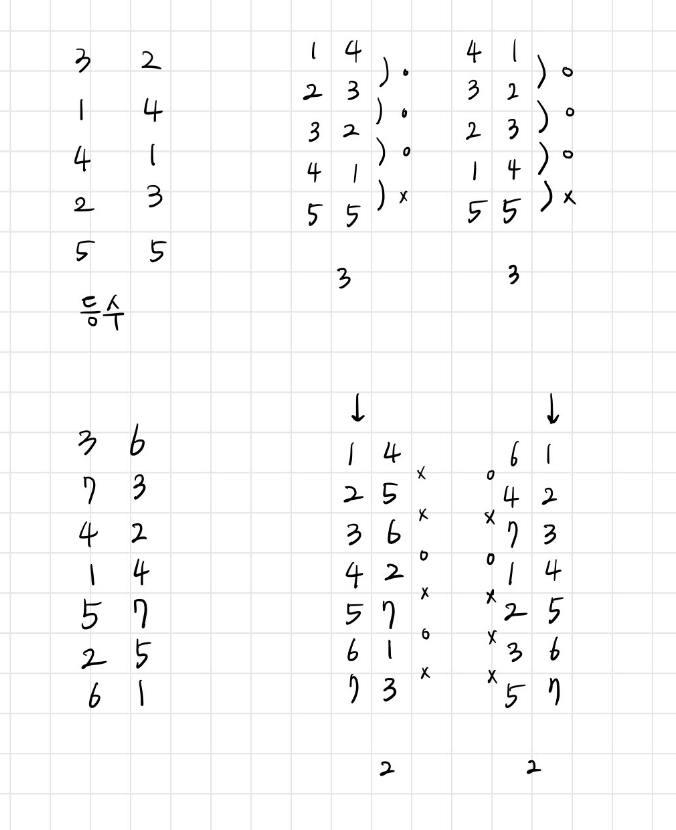 3 2
1 4
4 1
2 3
5 5
등수
1 4
2 3 ) o
3 2 ) o
4 1 ) o
5 5 ) x
3
4 1
3 2 ) o
2 3 ) o
1 4 ) o
5 5 ) x
3
3 6
7 3
4 2
1 4
5 7
2 5
6 1
↓
1 4
2 5 x
3 6 x
4 2 o
5 7 x
6 1 o
7 3 x
2
↓
6 1
o 4 2
x 7 3
o 1 4
x 2 5
x 3 6
x 5 7
2